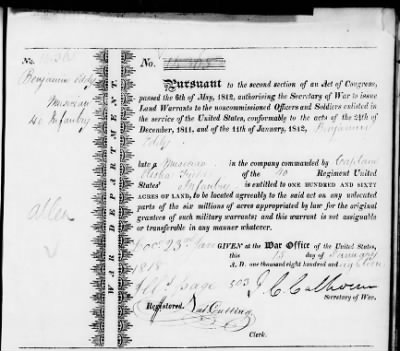 No.
Benjamin Eddy
Musician
40 Infantry
WAR DEPARTMENT.
No.
Pursuant to the second section of an Act of Congress,
passed the 6th of May, 1812, authorising the Secretary of War to issue
Land Warrants to the noncommissioned Officers and Soldiers enlisted in
the service of the United States, conformably to the acts of the 24th of
December, 1811, and of the 11th of January, 1812, Benjamin
Eddy
late a Musician in the company commanded by Captain
of the 40 Regiment United
States' Infantry is entitled to ONE HUNDRED AND SIXTY
ACRES OF LAND, to be located agreeably to the said act on any unlocated
parts of the six millions of acres appropriated by law for the original
grantees of such military warrants; and this warrant is not assignable
or transferable in any manner whatever.
23d GIVEN at the War Office of the United States,
this 15 day of January
1818 A. D. one thousand eight hundred and eighteen
page 503 J. C. Calhoun
Secretary of War.
Registered. Nat Cutting
Clerk.